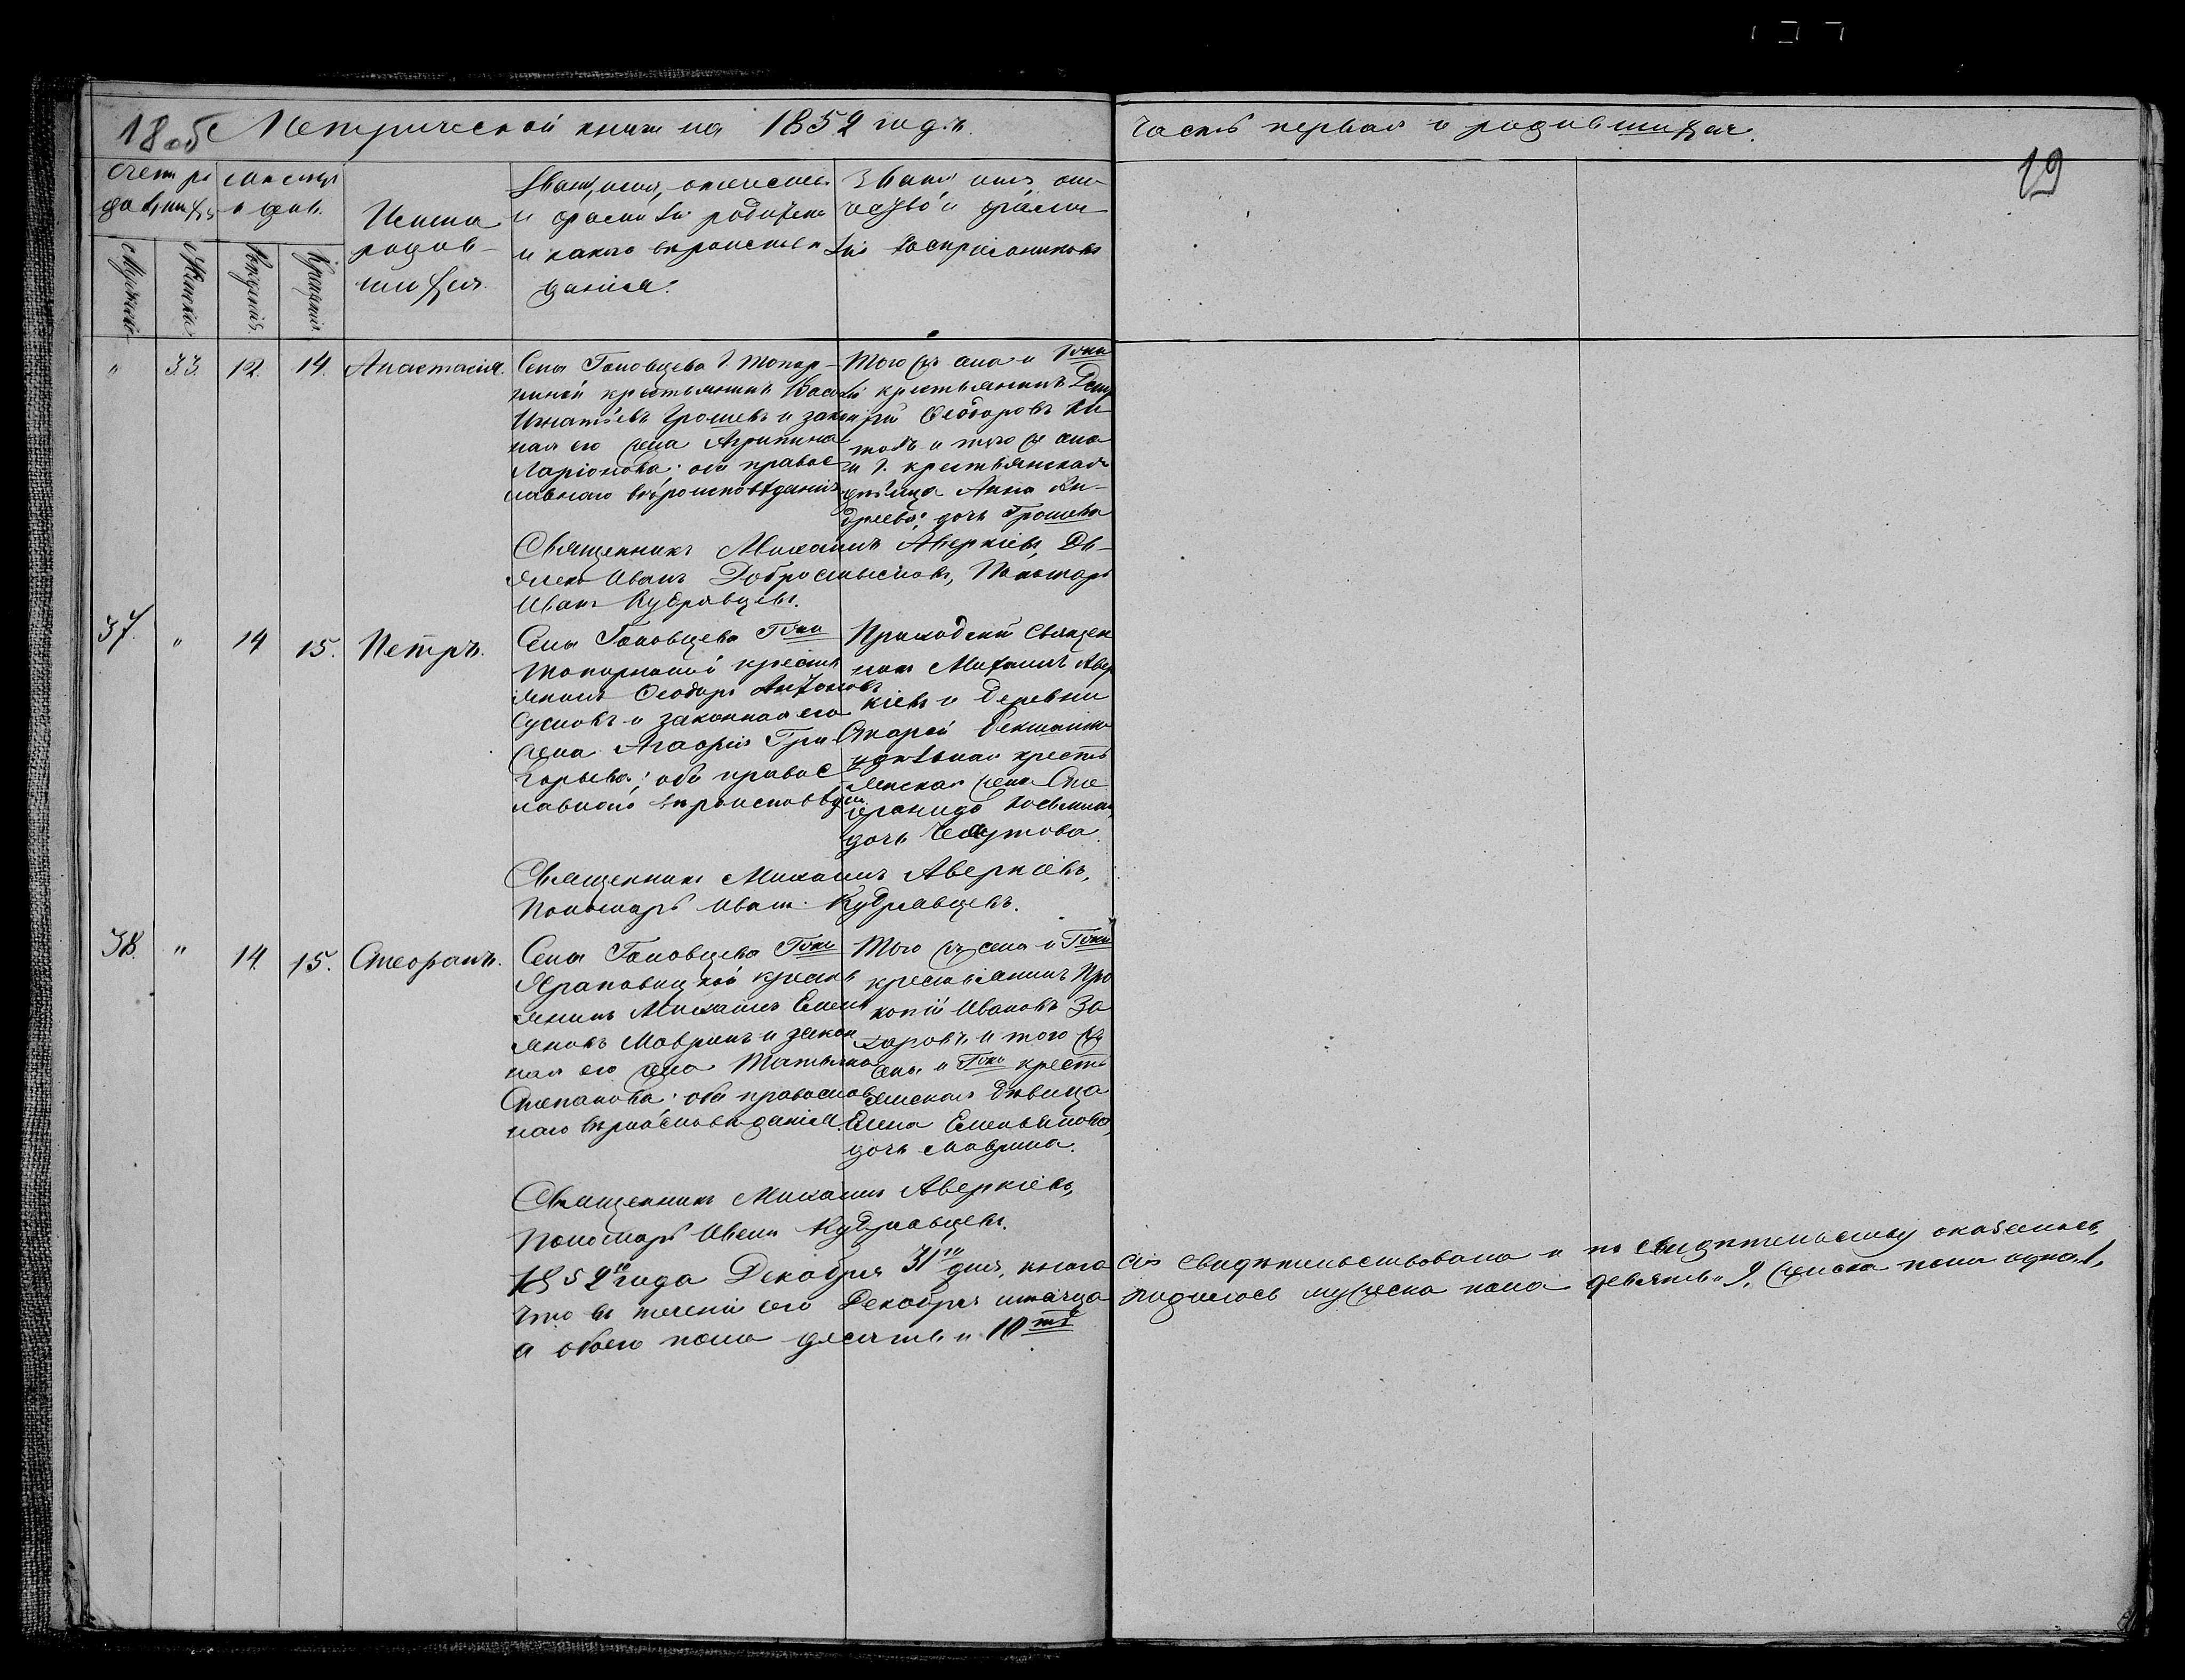 18об Метрической книги на 1852 годъ. Часть первая о родившихся.
19
Счетъ ро Месяцъ
дившихся и день.
Мужескій
Женскій
Рожденія
Крещенія
Имена
родов-
шихся.
Званіе, имя, отчество
и фамилія родителей
и какого вѣроисповѣ
данія.
Званіе имя, оте
чество и фами
лія воспріемниковъ
" 33. 12. 14. Анастасія.
Села Головцева Г. Топор-
ниной крестьянинъ Василій
Игнатьевъ Грошевъ и закон
ная его жена Агрипина
Ларіонова; оба правос
лавнаго вѣроисповѣданія
Того жъ села и Гжи
крестьянинъ Дми
трій Ѳеодоровъ
и того же села
и Г. крестьянская
дѣвица Анна Ан-
дреева дочь Грошева
Священникъ Михаилъ Аверкіевъ, Дь-
ячекъ Иванъ Добросмысловъ, Пономарь
Иванъ Кудрявцевъ.
37. " 14 15. Петръ.
Села Головцева Гжи
Топорниной кресть
янинъ Ѳеодоръ Антоновъ
Сусловъ и законная его
жена Агафія Гри
горьева; оба правос
лавнаго вѣроисповѣдан.
Приходскій Священ
никъ Михаилъ Авер
кіевъ и Деревни
Старой
удѣльная кресть
янская жена Сте
фанида
дочь
Священникъ Михаилъ Аверкіевъ,
Пономарь Иванъ Кудрявцевъ.
38. " 14. 15. Стефанъ.
Села Головцева Гжи
кресть
янинъ Михаилъ Емель
яновъ Мавринъ и закон
ная его жена Татьяна
Степанова; оба православ
наго вѣроисповѣданія.
Того жъ села и Гжи
крестьянинъ Про
копій Ивановъ За
харовъ и того жъ
села и Гжи кресть
янская дѣвица
Елена Емельянова,
дочь Маврина.
Священникъ Михаилъ Аверкіевъ,
Пономарь Иванъ Кудрявцевъ.
1852го года Декабря 31го дня, книга сія свидѣтельствована и по свидѣтельству оказалось,
что въ теченіи сего Декабря мѣсяца родилось мужеска пола девять 9, женска пола одна 1,
а обоего пола десять 10ть